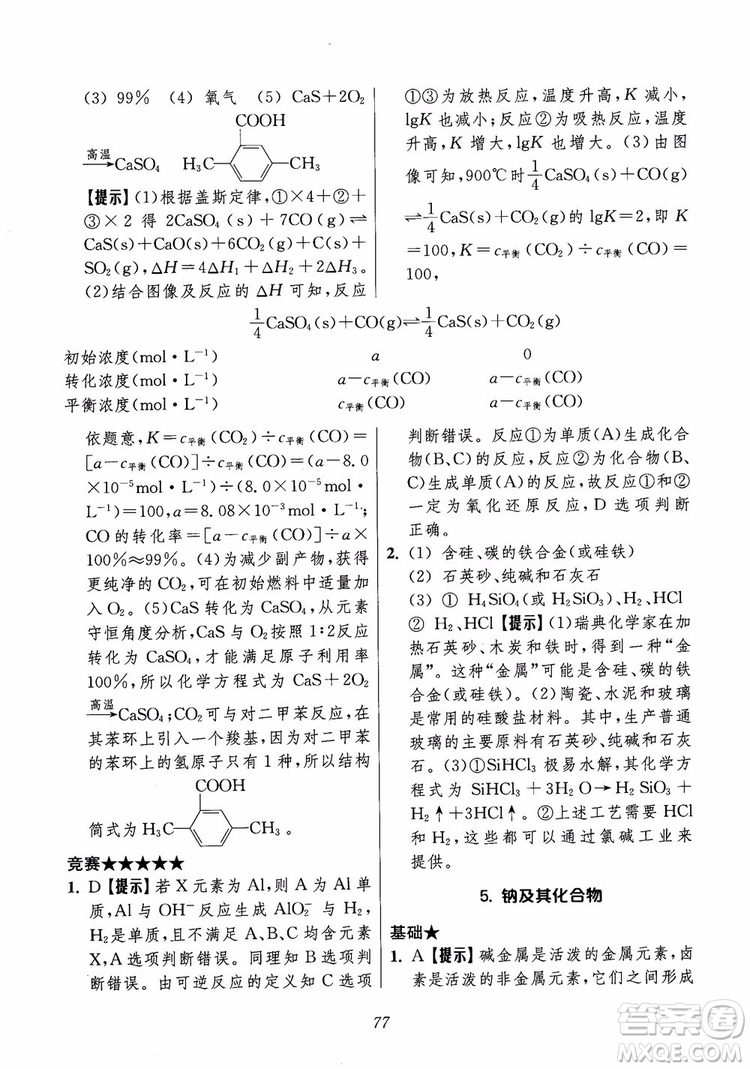 (3) 99% (4) 氧气 (5) CaS+2O₂
高温
→CaSO₄
COOH
H₃C CH₃
【提示】(1)根据盖斯定律,①×4+②+
③×2 得 2CaSO₄(s)+7CO(g)⇌
CaS(s)+CaO(s)+6CO₂(g)+C(s)+
SO₂(g),△H=4△H₁+△H₂+2△H₃。
(2)结合图像及反应的△H可知,反应
①③为放热反应,温度升高,K 减小,
lgK 也减小;反应②为吸热反应,温度
升高,K 增大,lgK 也增大。(3)由图
像可知,900℃时 1/4CaSO₄(s)+CO(g)
⇌1/4CaS(s)+CO₂(g)的 lgK=2,即 K
=100,c平衡(CO₂)÷c平衡(CO)=
100,
1/4CaSO₄(s)+CO(g)⇌1/4CaS(s)+CO₂(g)
初始浓度(mol·L⁻¹) a 0
转化浓度(mol·L⁻¹) a−c平衡(CO) a−c平衡(CO)
平衡浓度(mol·L⁻¹) c平衡(CO) a−c平衡(CO)
依题意,K=c平衡(CO₂)÷c平衡(CO)=
[a−c平衡(CO)]÷c平衡(CO)=(a−8.0
×10⁻⁵mol·L⁻¹)÷(8.0×10⁻⁵mol·
L⁻¹)=100,a=8.08×10⁻³mol·L⁻¹;
CO的转化率=[a−c平衡(CO)]÷a×
100%≈99%。(4)为减少副产物,获得
更纯净的CO₂,可在初始燃料中适量加
入O₂。(5)CaS转化为CaSO₄,从元素
守恒角度分析,CaS与O₂按照1∶2反应
转化为CaSO₄,才能满足原子利用率
100%,所以化学方程式为CaS+2O₂
高温
→CaSO₄;CO₂可与对二甲苯反应,在
其苯环上引入一个羧基,因为对二甲苯
的苯环上的氢原子只有1种,所以结构
COOH
简式为 H₃C CH₃ 。
竞赛★★★★★
1. D【提示】若X元素为Al,则A为Al单
质,Al与OH⁻反应生成AlO₂⁻与H₂,
H₂是单质,只满足A、B、C的转化关系,
A选项判断错误。同理知B选项判
断错误。由可逆反应的定义知C选项
判断错误。反应①为单质(A)生成化合
物(B、C)的反应,故反应①和反应②
一定为氧化还原反应,D选项判断
正确。
2. (1) 含硅、碳的铁合金(或硅铁)
(2) 石英砂、纯碱和石灰石
(3) ① H₄SiO₄(或H₂SiO₃)、H₂、HCl
② H₂、HCl【提示】(1)瑞典化学家在加
热石英砂、木炭和铁时,得到一种“金
属”。这种“金属”可能是含硅、碳的铁
合金(或硅铁)。(2)陶瓷、水泥和玻璃
是常用的硅酸盐材料。其中,生产普通
玻璃的主要原料有石英砂、纯碱和石灰
石。(3)①SiHCl₃极易水解,其化学方
程式为 SiHCl₃+3H₂O→H₂SiO₃+
H₂↑+3HCl↑。②上述工艺需要HCl
和H₂,这些都可以通过氯碱工业来
提供。
5. 钠及其化合物
基础★
1. A【提示】碱金属是活泼的金属元素,卤
素是活泼的非金属元素,它们之间形成
77
答案圈